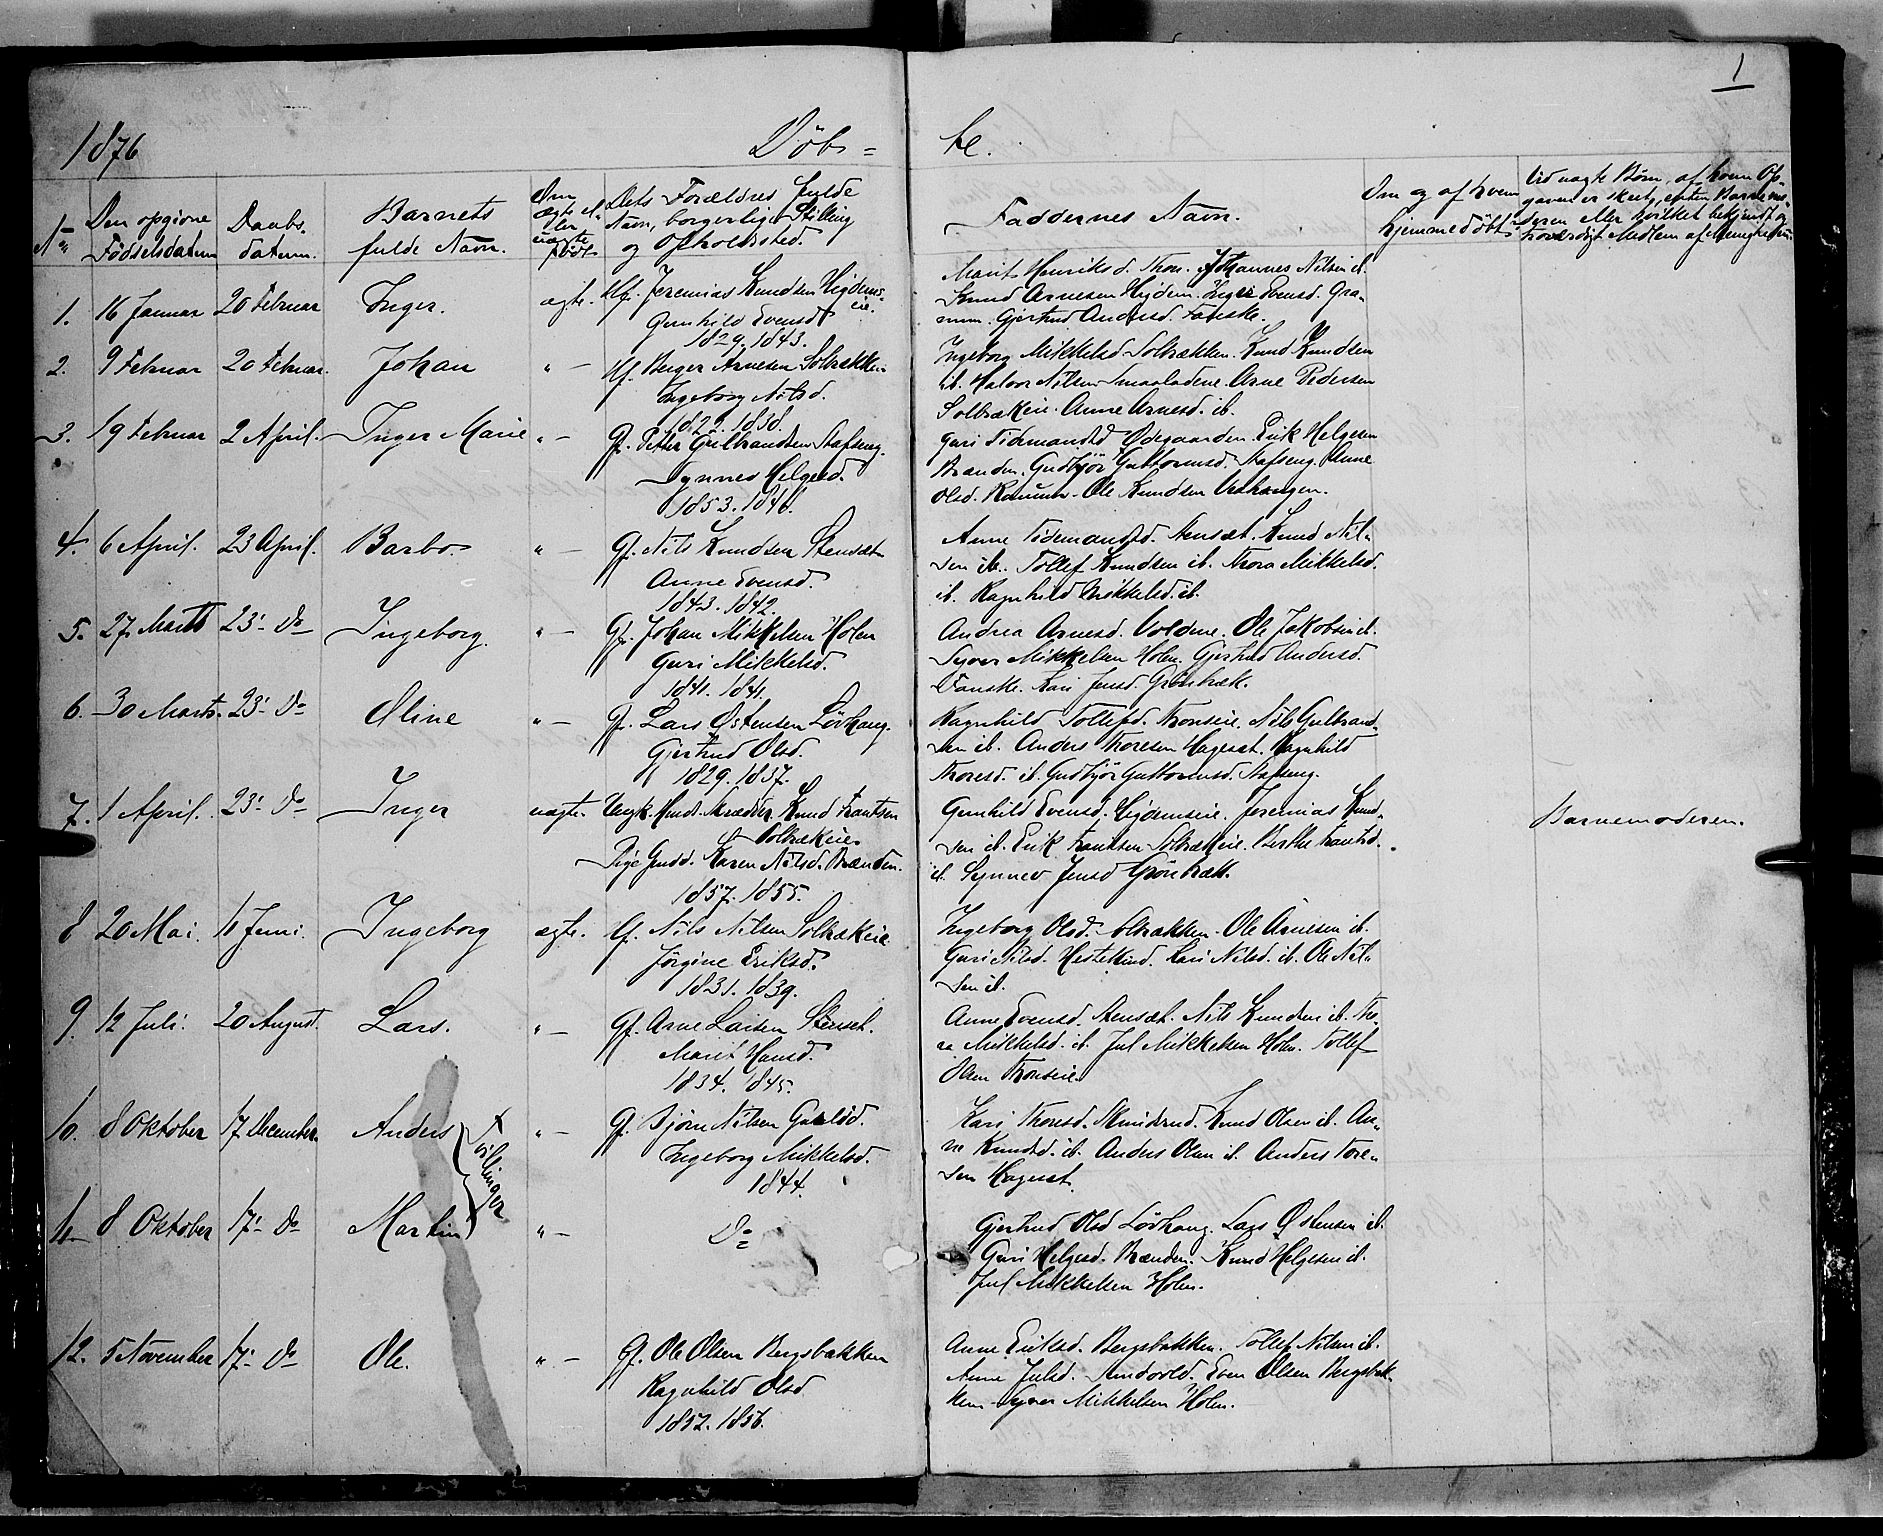 1
1876 Döb= te.
No
Den opgivne
Fødselsdatum
Daabs-
datum.
Barnets
fulde Navn.
Om
ægte el-
ler
uægte
født
Dets Forældres fulde
Navn, borgerlige Stilling
og Opholdssted.
Faddernes Navn.
Om og af hvem
hjemmedöbt
Ved uægte Børn, af hvem Op-
gaven er skeet, enten Barnemo-
deren eller hvilket bekjendt og
troværdigt Medlem af Menigheden.
1. 16 Januar 20 Februar Inger. ægte. Hf. Jeremias Knudsen Higdems-
eie.
Gunhild Evensd
1829. 1843.
Marit Henriksd. Thon. Johannes Nilsen ib.
Knud Arnesen Higdem. Inger Evensd. Gra-
num. Gjertrud Andersd. Fanske.
2. 9 Februar 20 Februar. Johan " — Hf. Berger Arnesen Solbrækken
Ingeborg Nilsd.
1822. 1838.
Ingeborg Mikkelsd Solbrækken. Knud Knudsen
ib. Halvor Nilsen Smaaladene. Arne Pedersen
Solbrækeie. Anne Arnesd. ib.
3. 19 Februar 2 April. Inger Marie " — Gf. Peter Gulbrandsen Stafseng.
Synnev Helgesd.
1853. 1848.
Guri Tidemandsd Ödegaarden. Erik Helgesen
Brænden. Gudbjör Guttormsd. Stafseng. Anne
Olsd. Ranum. Ole Knudsen Vesthangen.
4. 6 April. 23 April. Barbo. " — Gf. Nils Knudsen Stensæt
Anne Evensd.
1843. 1842.
Anne Tidemandsd. Stensæt. Knud Nil-
sen ib. Tollef Knudsen ib. Thora Mikkelsd.
ib. Ragnhild Mikkelsd. ib.
5. 27. Marts 23' Do Ingeborg. " — Gf. Johan Mikkelsen Holm
Guri Mikkelsd.
1841. 1841.
Andrea Arnesd. Voldene. Ole Jakobsen ib.
Syver Mikkelsen Holm. Gjertrud Andersd.
Fanske. Kari Jensd. Grönbræk.
6. 30 Marts. 23' Do Oline " — Gf. Lars Östensen Lövhaug.
Gjertrud Olsd.
1829. 1837.
Ragnhild Tollefsd. Thonseie. Nils Gulbrand-
sen ib. Anders Thoresen Hagesæt. Ragnhild
Thoresd. ib. Gudbjör Guttormsd. Stafseng.
7. 1 April. 23' Do Inger uægte. Ungk. Hmd. Skrædder Knud Frantsen
Solbrækeie
Pige Gmdd. Karen Nilsd. Brænden.
1857. 1855.
Gunhild Evensd. Higdemseie. Jeremias Knud-
sen ib. Erik Frantsen Solbrækeie. Berthe Frantsd.
ib. Synnev Jensd Grönbræk.
Barnemoderen.
8 20 Mai. 11 Juni. Ingeborg ægte. Gf. Nils Nilsen Solbrækeie
Jörgine Eriksd.
1831. 1839.
Ingeborg Olsd. Solbrækken. Ole Arnesen ib.
Guri Nilsd. Hestekind. Kari Nilsd. ib. Ole Nil-
sen ib.
9. 12 Juli. 20 August. Lars. " — Gf. Arne Larsen Stensæt.
Marit Hansd.
1834. 1845.
Anne Evensd. Stensæt. Nils Knudsen ib. Tho-
ra Mikkelsd. ib. Jul Mikkelsen Holm. Tollef
Olsen Thonseie.
10. 8 Oktober 17 December. Anders " — Gf. Björn Nilsen
Ingeborg Mikkelsd.
1844.
Kari Thoresd. Knud Olsen ib. An-
ne Knudsd. ib. Anders Olsen ib. Anders Tore-
sen Hagesæt.
Tvillinger
11. 8 Oktober 17' Do Martin " — Do
Gjertrud Olsd Lövhaug. Lars Östensen ib.
Guri Helgesd. Brænden. Knud Helgesen ib.
Jul Mikkelsen Holm.
12. 5 November 17' Do Ole. " — Gf. Ole Olsen Bergsbakken
Ragnhild Olsd
1852. 1856.
Anne Eriksd. Bergsbakken. Tollef Nilsen ib.
Anne Julsd. Even Olsen Bergsbak-
ken. Syver Mikkelsen Holm.